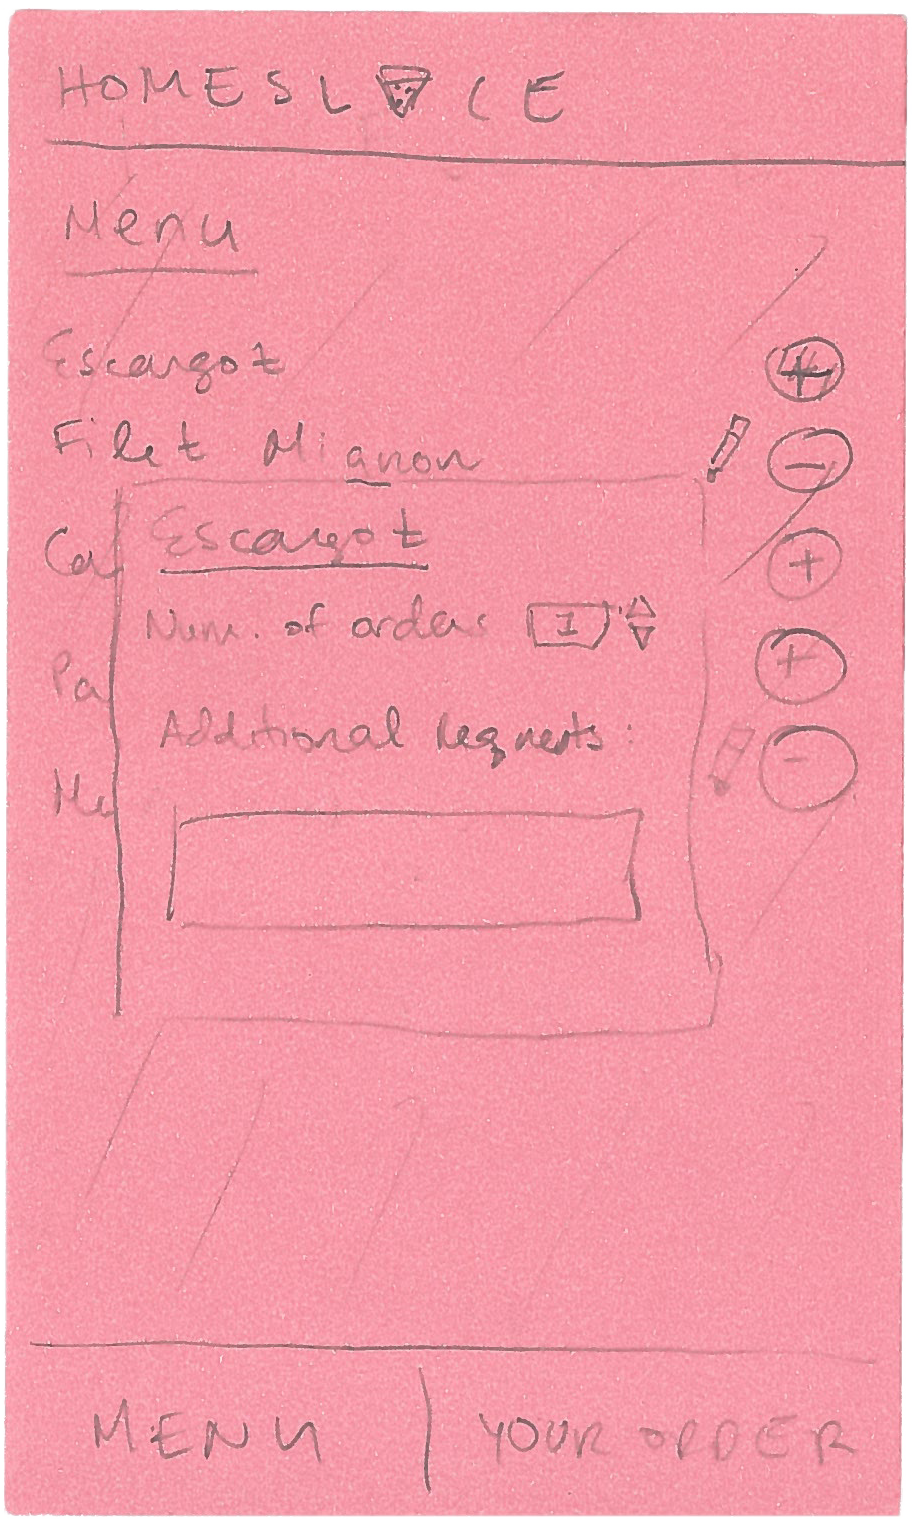 HOMESLICE
Menu
Escargot +
Filet Mignon -
Ca +
Pa +
Me -
Escargot
Num. of orders 1
Additional Requests:
MENU | YOUR ORDER